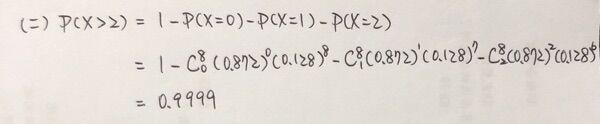 (二) P(X>2) = 1-P(X=0)-P(X=1)-P(X=2)
= 1-C₀⁸(0.872)⁰(0.128)⁸-C₁⁸(0.872)¹(0.128)⁷-C₂⁸(0.872)²(0.128)⁶
= 0.9999